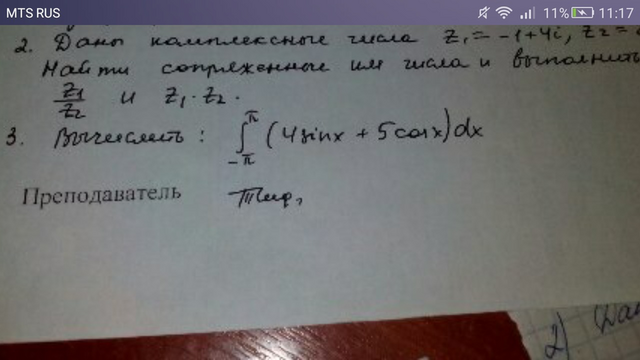 MTS RUS 11% 11:17
2. Даны комплексные числа z₁ = -1+4i, z₂ =
Найти сопряженные им числа и выполнить
z₁/z₂ и z₁·z₂.
3. Вычислить: ∫_{-π}^{π} (4sinx + 5cosx)dx
Преподаватель
2)